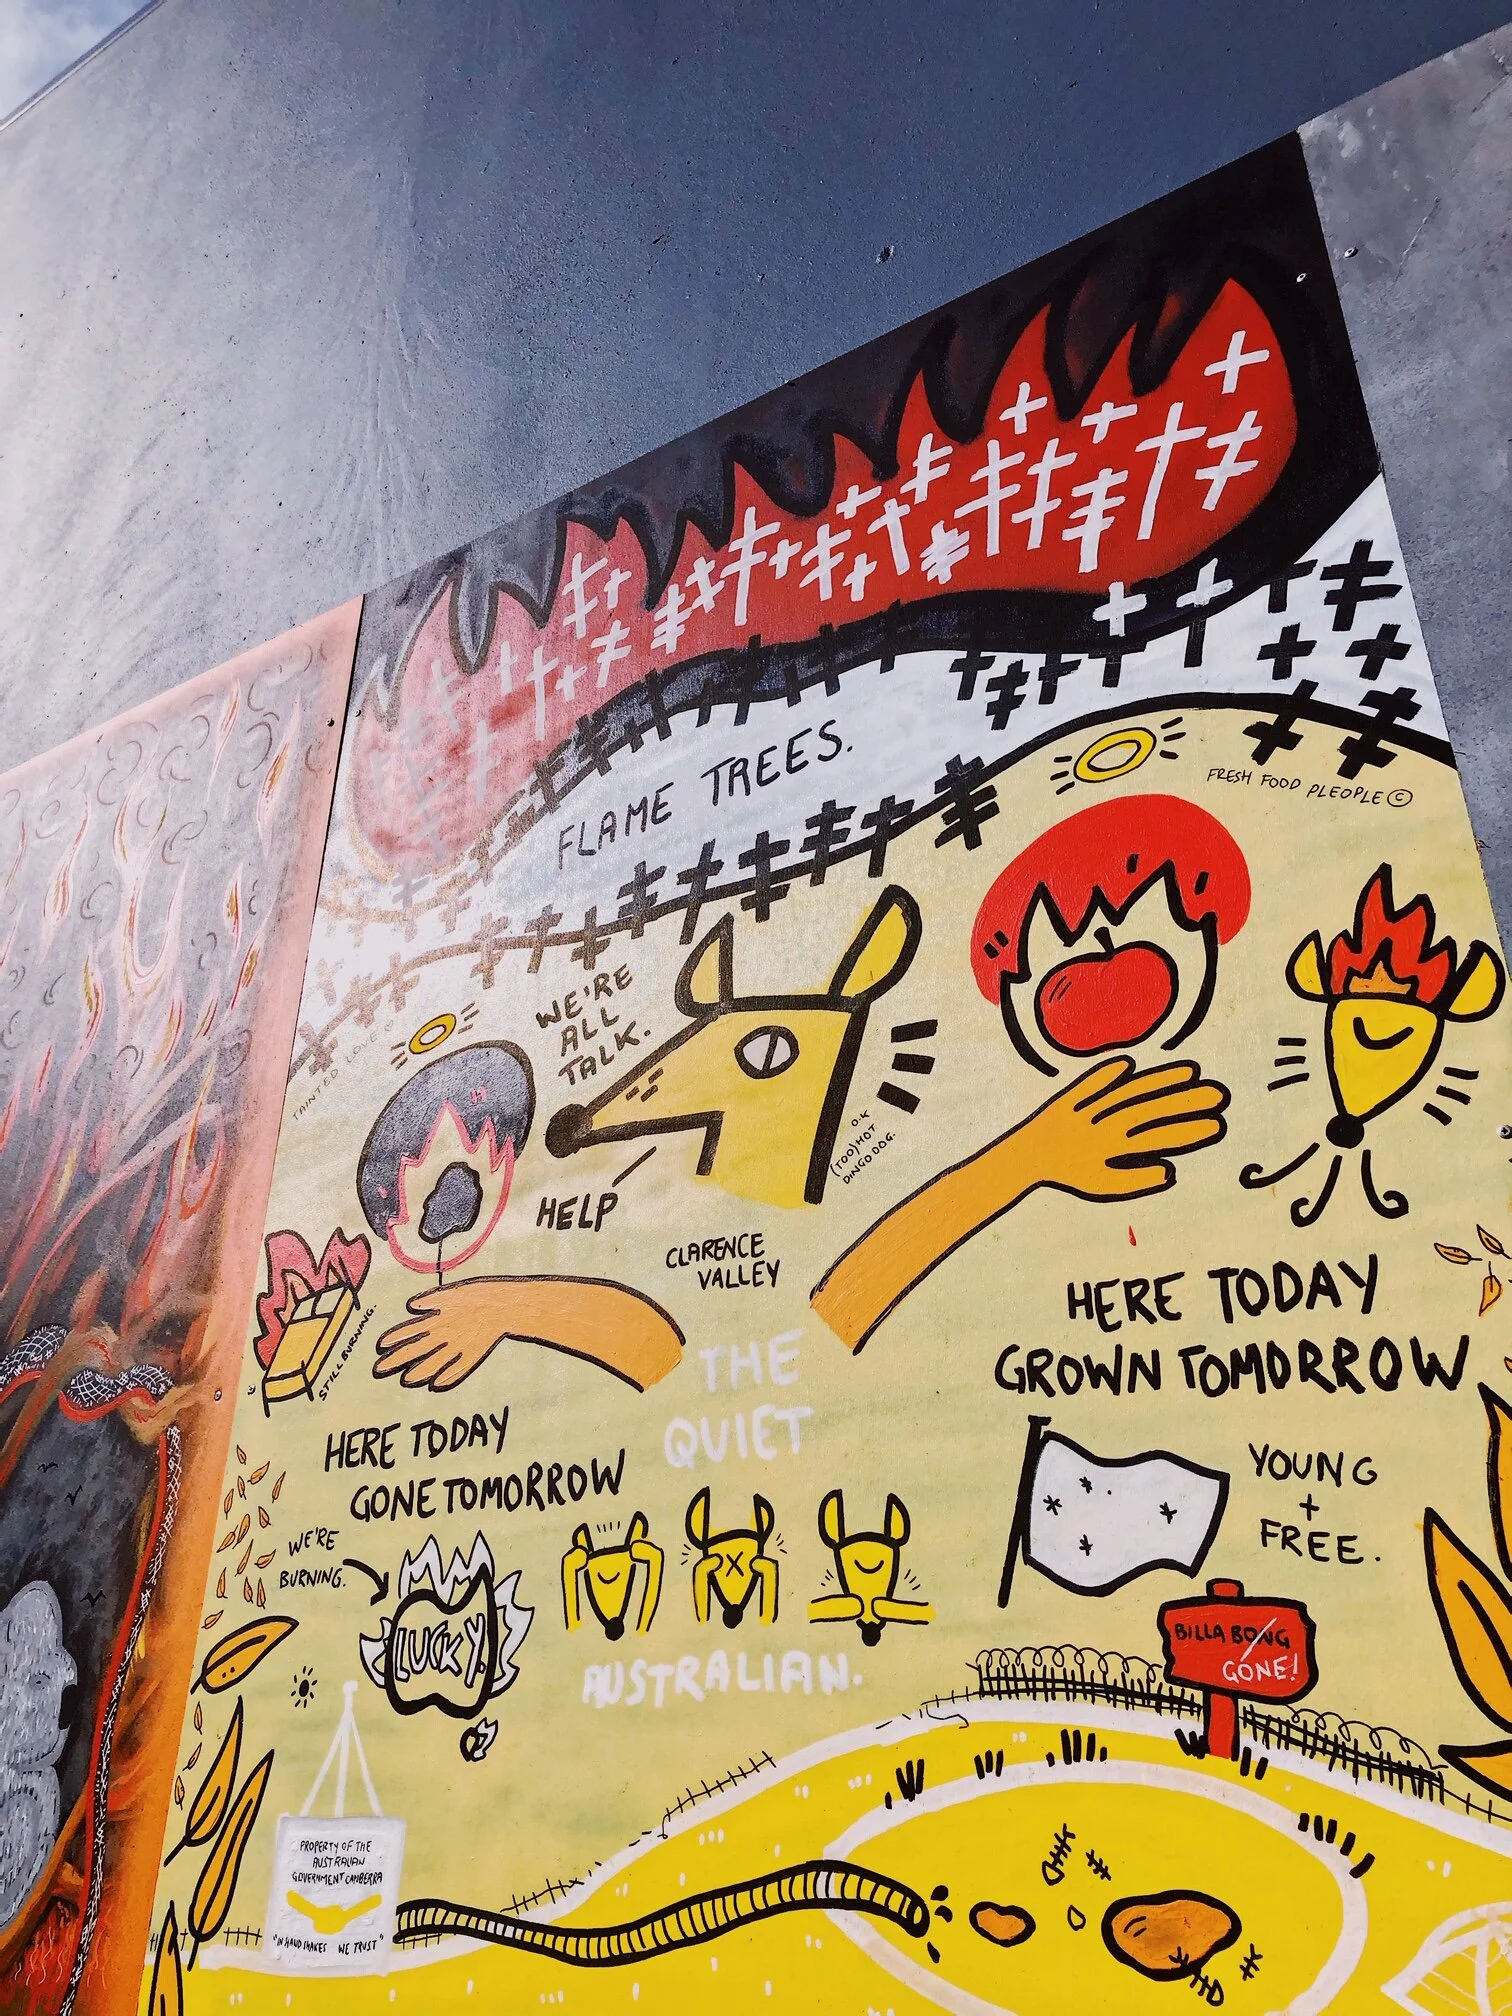 FLAME TREES.
FRESH FOOD PLEOPLE ©
WE'RE
ALL
TALK.
TAINTED LOVE
O.K
(TOO) HOT
DINGO DOG.
HELP
CLARENCE
VALLEY
STILL BURNING.
HERE TODAY
GROWN TOMORROW
THE
QUIET
AUSTRALIAN.
HERE TODAY
GONE TOMORROW
WE'RE
BURNING.
LUCKY.
YOUNG
+
FREE.
BILLA BONG
GONE!
PROPERTY OF THE
AUSTRALIAN
GOVERNMENT CANBERRA
"IN HANDSHAKES WE TRUST"